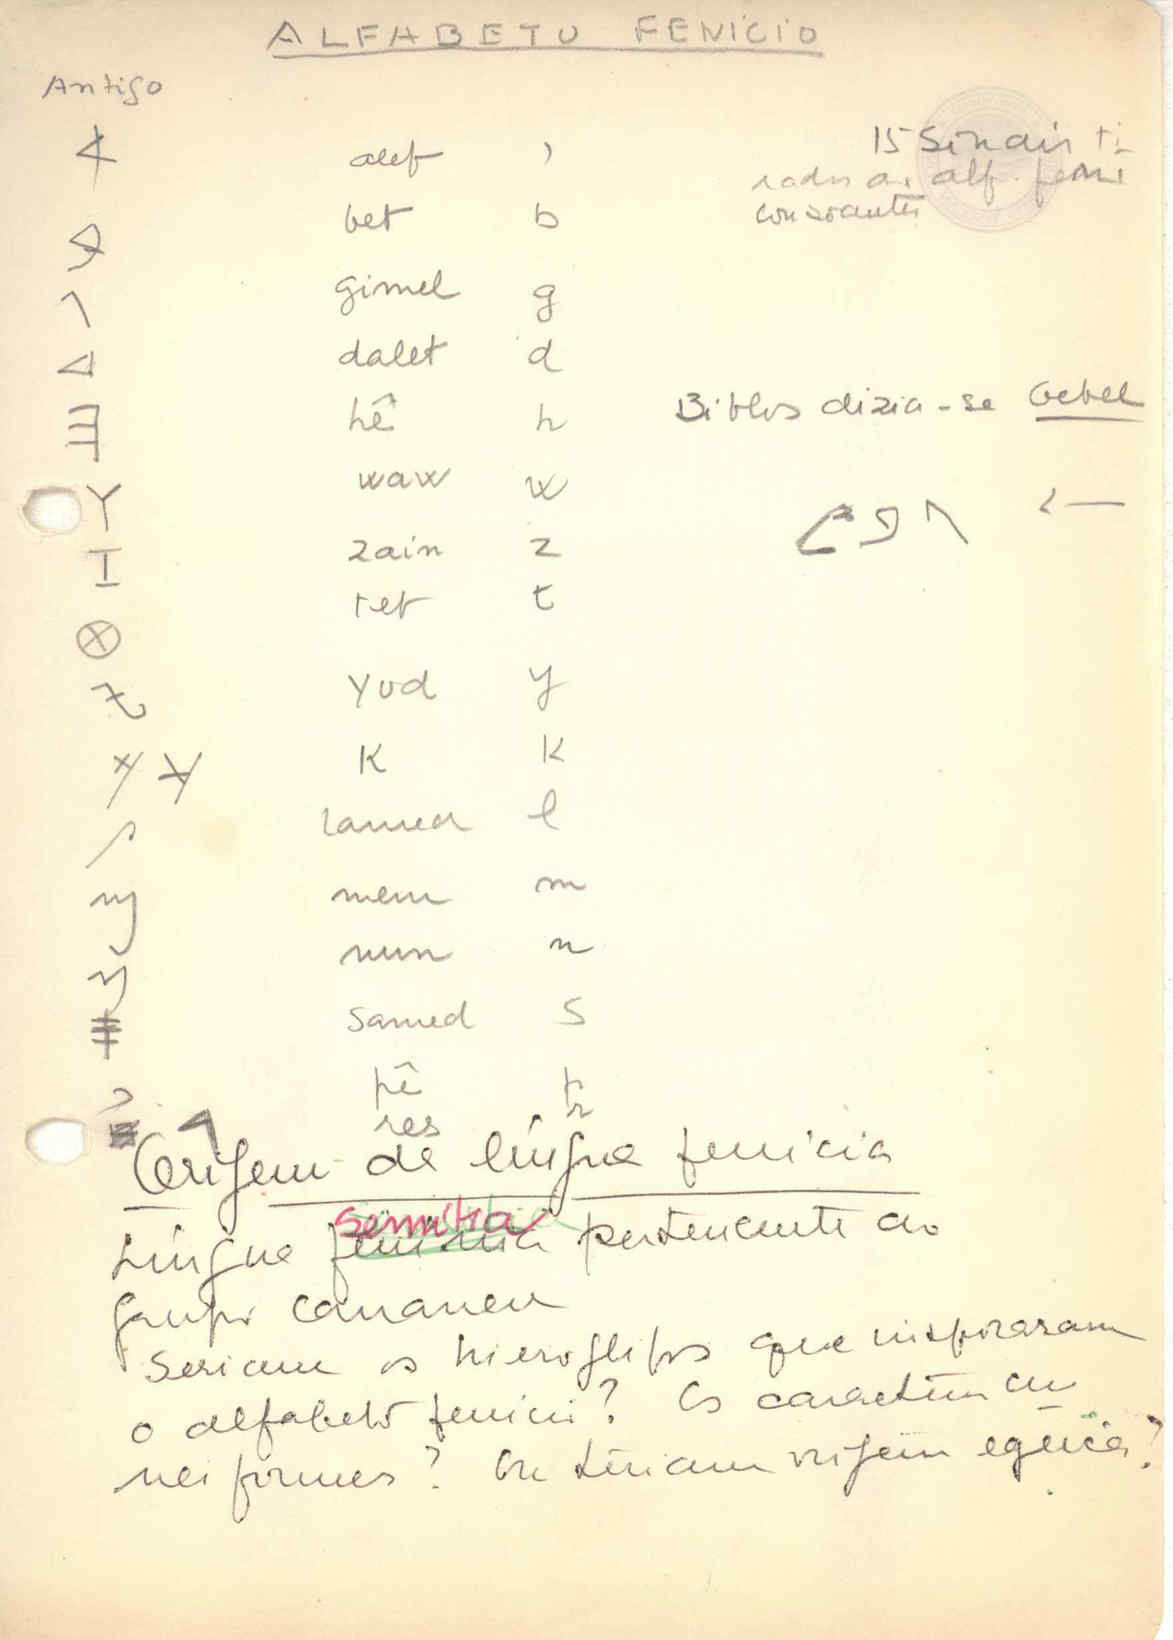 ALFABETO FENICIO
Antigo
𐤀 alef ʾ
𐤁 bet b
𐤂 gimel g
𐤃 dalet d
𐤄 hê h
𐤅 waw w
𐤆 zain z
𐤈 tet t
𐤉 yod y
𐤊 𐤊 K k
𐤋 lamed l
𐤌 mem m
𐤍 nun n
𐤎 samed s
𐤐 pê p
𐤓 res r
15 Sinais ti
rados ao alf. feni
consoantes
Biblos dizia-se Gebel
𐤂𐤁𐤋 ←
Origem da língua fenicia
semitica
Língua fenicia pertencente ao
grupo cananeu
Seriam os hieroglifos que inspiraram
o alfabeto fenicio? Os caracteres cu
neiformes? Ou teriam origem egeica?